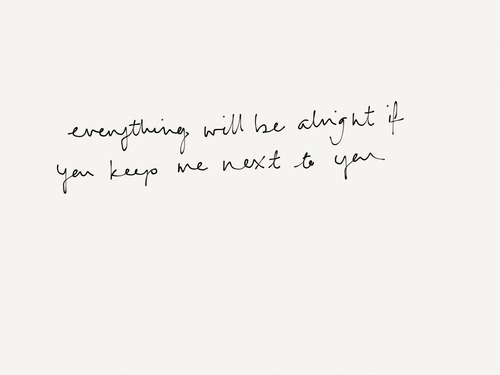 everything will be alright if
you keep me next to you